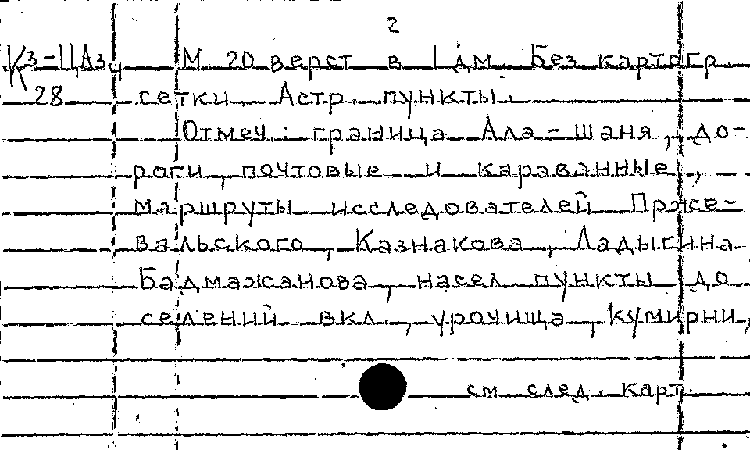 2
К3-ЦАз М 20 верст в 1 дм. Без картогр.
28 сетки. Астр. пункты.
Отмеч: граница Ала-шаня, до-
роги, почтовые и караванные,
маршруты исследователей Прже-
вальского, Казнакова, Ладыгина
Бадмажанова, насел. пункты до
селений вкл., урочища, кумирни,
см. след. карт.